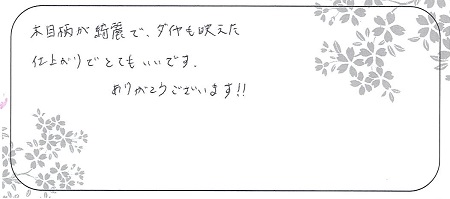 木目柄が綺麗で、ダイヤも映えた
仕上がりでとてもいいです.
ありがとうございます!!